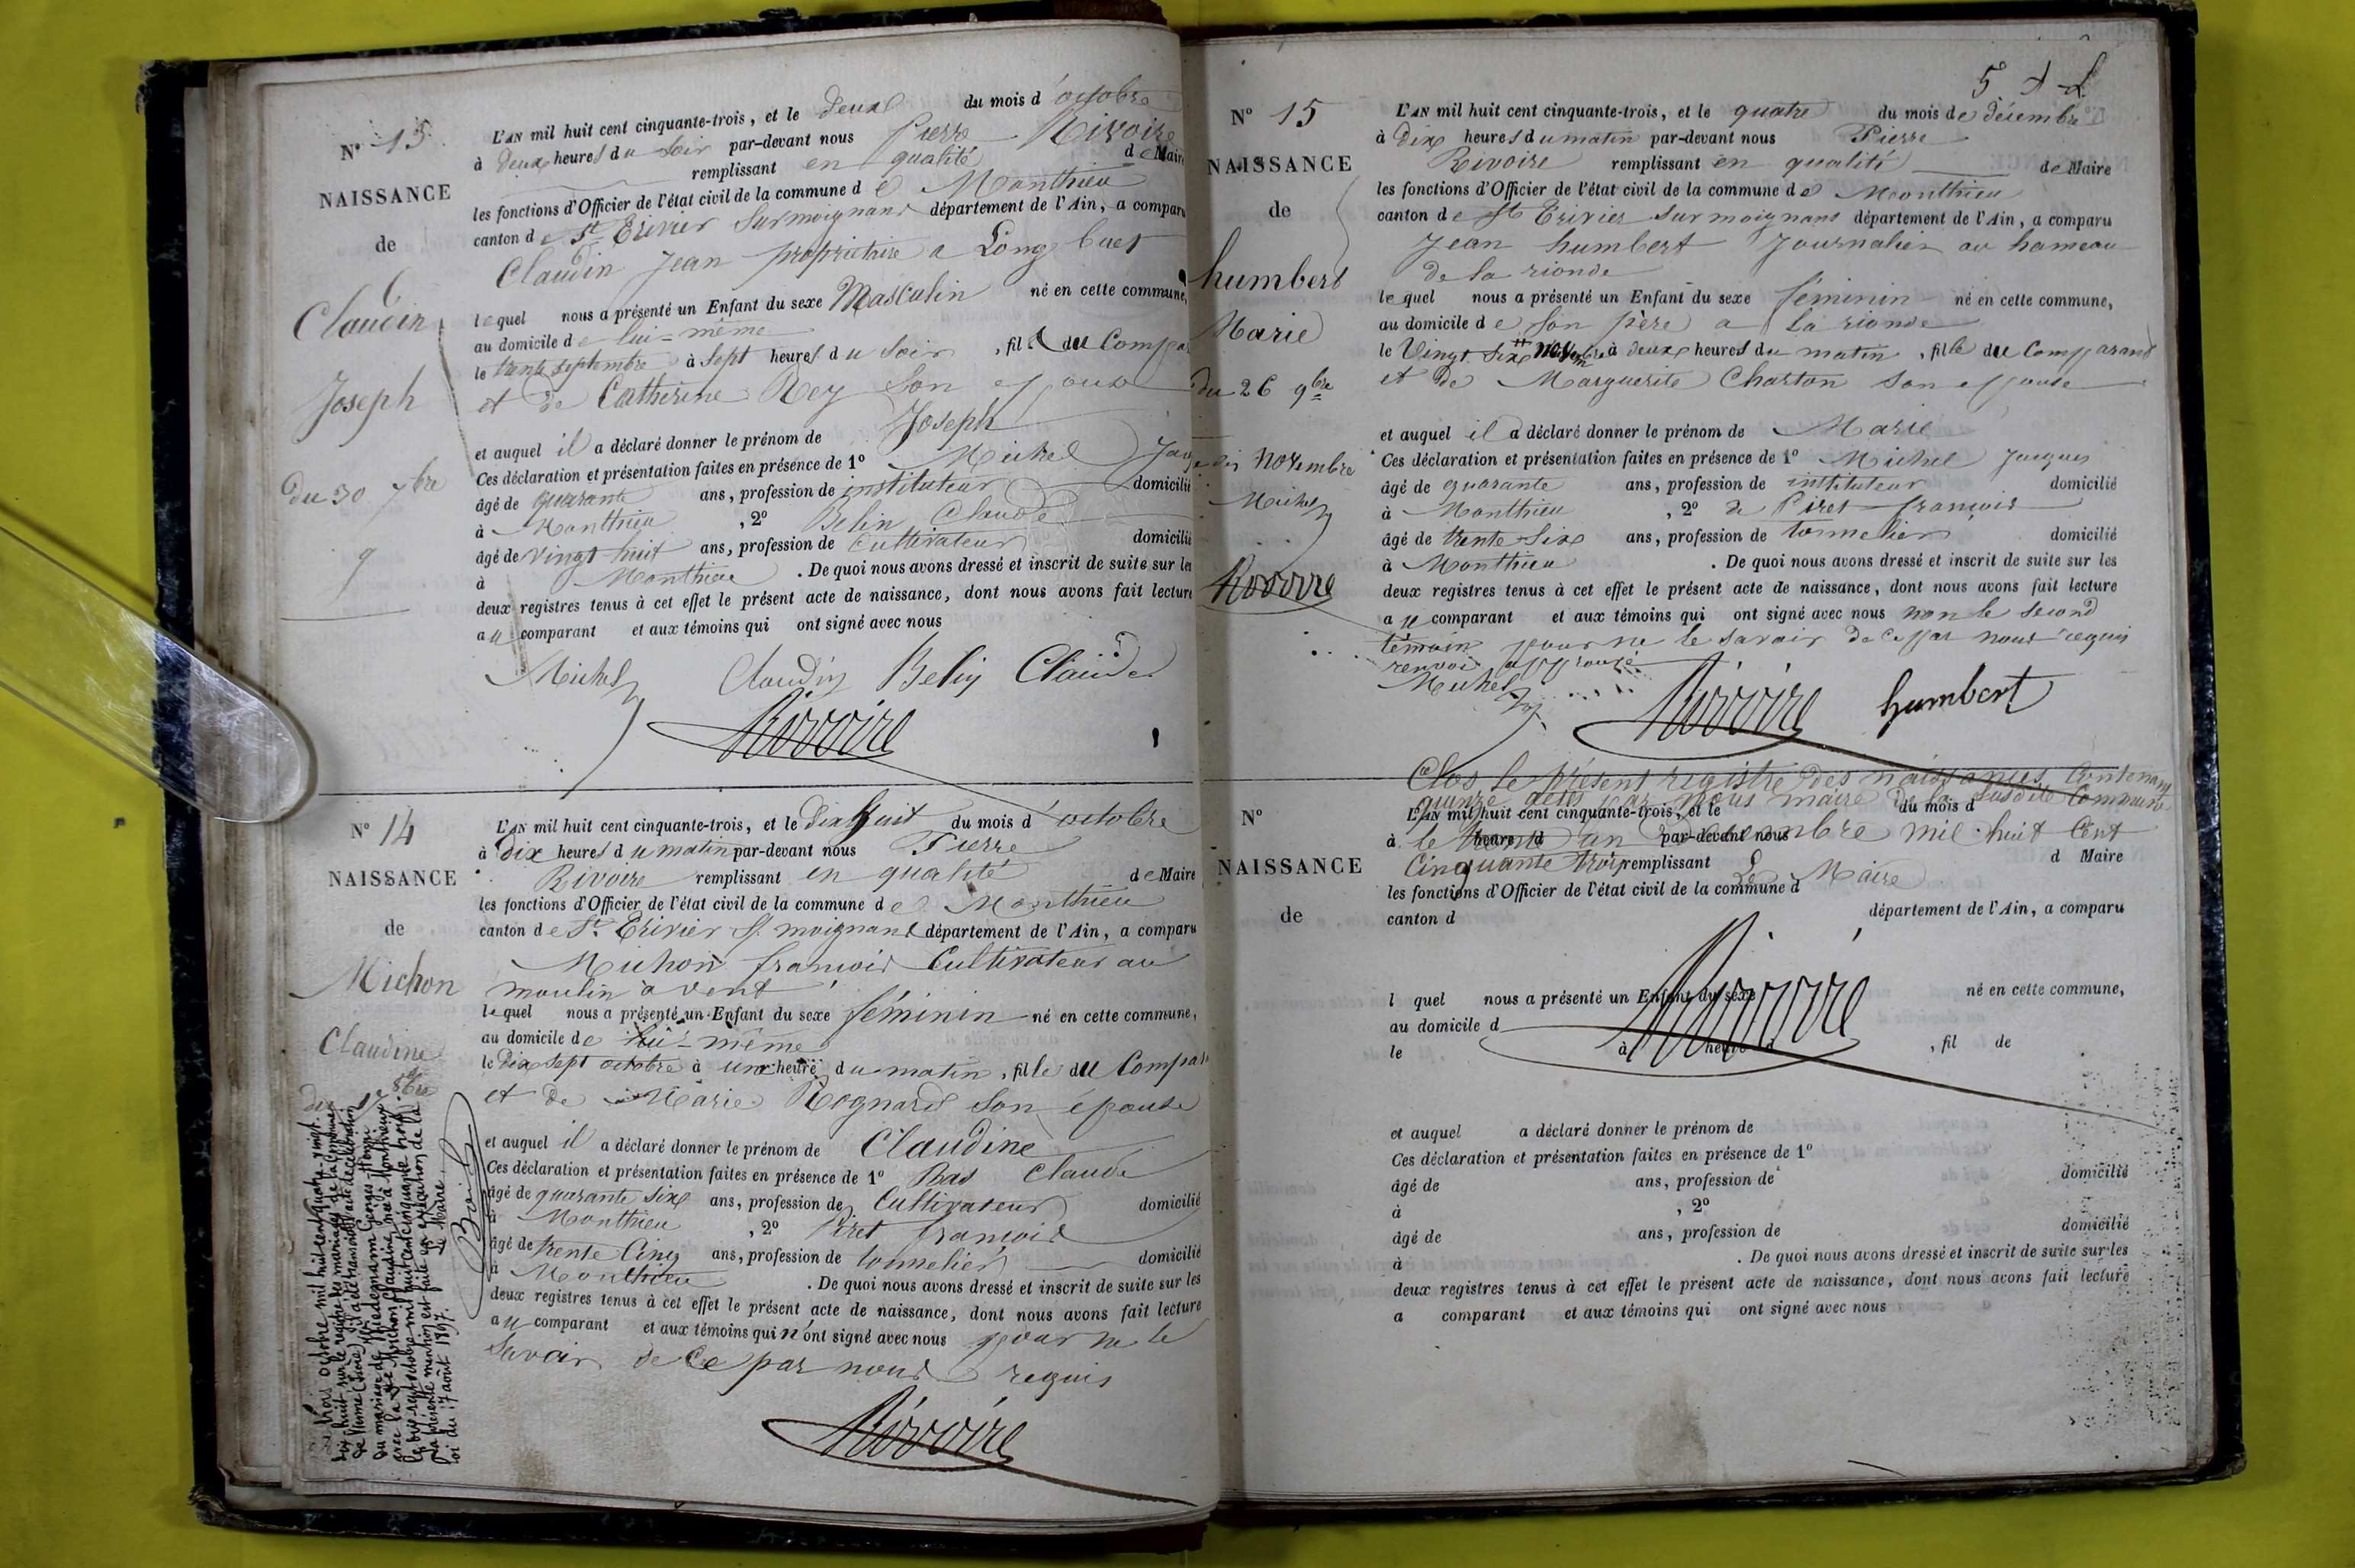 N° 13
NAISSANCE
de
Claudin
Joseph
du 30 7bre
9
L'AN mil huit cent cinquante-trois, et le deux du mois d'octobre
à deux heures du soir par-devant nous Pierre Rivoire
remplissant en qualité de Maire
les fonctions d'Officier de l'état civil de la commune de Monthieu
canton de St Trivier Surmoignans département de l'Ain, a comparu
Claudin Jean propriétaire a
lequel nous a présenté un Enfant du sexe Masculin né en cette commune,
au domicile de lui-même
le trente septembre à sept heures du soir, fils du Compar
et de Catherine Rey son epouse
et auquel il a déclaré donner le prénom de Joseph
Ces déclaration et présentation faites en présence de 1° Michel
âgé de quarante ans, profession de instituteur domicilié
à Monthieu, 2° Belin Claude
âgé de vingt huit ans, profession de Cultivateur domicilié
à Monthieu. De quoi nous avons dressé et inscrit de suite sur les
deux registres tenus à cet effet le présent acte de naissance, dont nous avons fait lecture
au comparant et aux témoins qui ont signé avec nous
Michel Claudin Belin Claude
Rivoire
N° 14
NAISSANCE
de
Michon
Claudine
du 17 8bre
L'AN mil huit cent cinquante-trois, et le dix huit du mois d'octobre
à Dix heures du matin par-devant nous Pierre
Rivoire remplissant en qualité de Maire
les fonctions d'Officier de l'état civil de la commune de Monthieu
canton de St Trivier S. moignans département de l'Ain, a comparu
Michon francois Cultivateur au
moulin à vent
lequel nous a présenté un Enfant du sexe féminin né en cette commune,
au domicile de lui-même
le dix sept octobre à une heure du matin, fille du Compar
et de Marie Rognard son épouse
et auquel il a déclaré donner le prénom de Claudine
Ces déclaration et présentation faites en présence de 1° Bas Claude
âgé de quarante six ans, profession de Cultivateur domicilié
à Monthieu, 2° Piret francois
âgé de trente cinq ans, profession de tonnelier domicilié
à Monthieu. De quoi nous avons dressé et inscrit de suite sur les
deux registres tenus à cet effet le présent acte de naissance, dont nous avons fait lecture
au comparant et aux témoins qui n'ont signé avec nous pour ne le
savoir de ce par nous requis
Rivoire
trois octobre mil huit cent quatre vingt
dix huit sur le registre des mariages de la commune
de (Isère) a été transcrit acte de célébration
du mariage de Georges Henri
avec la Michon Claudine, née à Monthieux
le dix sept octobre mil huit cent cinquante trois
la présente mention est faite en exécution de la
loi du 17 août 1897. Le Maire.
N° 15
NAISSANCE
de
humbert
Marie
du 26 9bre
novembre
Michel
Rivoire
L'AN mil huit cent cinquante-trois, et le quatre du mois de décembre
à Dix heures du matin par-devant nous Pierre
Rivoire remplissant en qualité de Maire
les fonctions d'Officier de l'état civil de la commune de Monthieu
canton de St Trivier sur moignans département de l'Ain, a comparu
Jean humbert Journalier au hameau
de la rionde
lequel nous a présenté un Enfant du sexe féminin né en cette commune,
au domicile de son père a la rionde
le Vingt six novembre à deux heures du matin, fille du Comparant
et de Marguerite Charton son epouse
et auquel il a déclaré donner le prénom de Marie
Ces déclaration et présentation faites en présence de 1° Michel Jacques
âgé de quarante ans, profession de instituteur domicilié
à Monthieu, 2° de Piret francois
âgé de trente six ans, profession de tonnelier domicilié
à Monthieu. De quoi nous avons dressé et inscrit de suite sur les
deux registres tenus à cet effet le présent acte de naissance, dont nous avons fait lecture
au comparant et aux témoins qui ont signé avec nous non le second
témoin pour ne le savoir de ce par nous requis
renvoi approuvé
Michel Rivoire humbert
Clos le présent registre des naissances Contenant
quinze actes par nous maire de la susdite Commune
le trente un décembre mil huit Cent
Cinquante trois
Le Maire
Rivoire
N°
NAISSANCE
de
L'AN mil huit cent cinquante-trois, et le du mois d
à heure d par-devant nous
remplissant d Maire
les fonctions d'Officier de l'état civil de la commune d
canton d département de l'Ain, a comparu
l quel nous a présenté un Enfant du sexe né en cette commune,
au domicile d
le à heure d, fil de
et auquel a déclaré donner le prénom de
Ces déclaration et présentation faites en présence de 1°
âgé de ans, profession de domicilié
à, 2°
âgé de ans, profession de domicilié
à. De quoi nous avons dressé et inscrit de suite sur les
deux registres tenus à cet effet le présent acte de naissance, dont nous avons fait lecture
a comparant et aux témoins qui ont signé avec nous